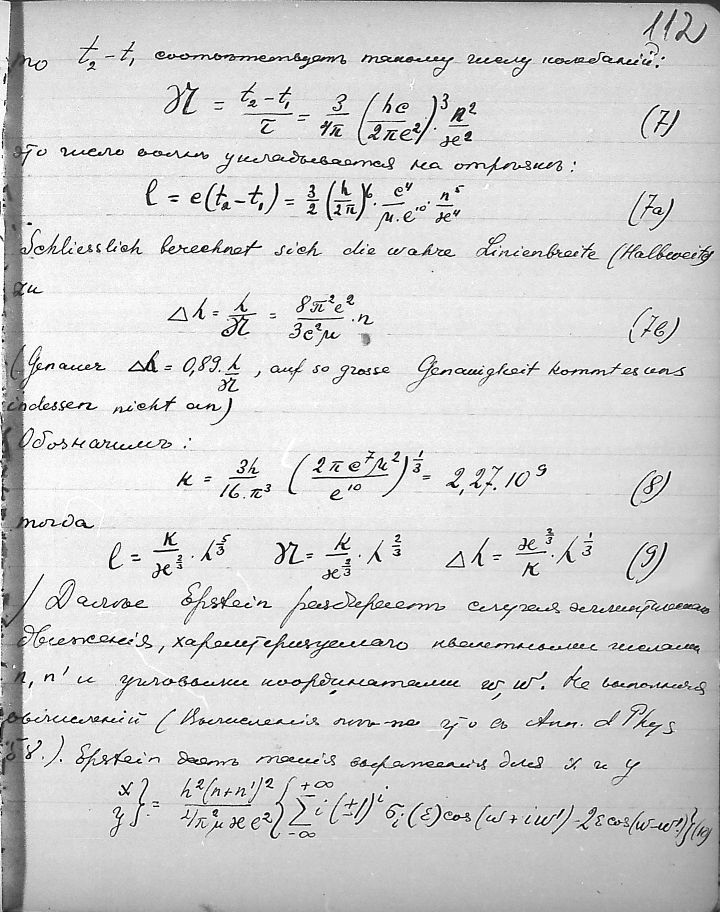 112
то t₂-t₁ соответствуетъ такому числу колебаній:
𝔑 = (t₂-t₁)/τ = 3/4π (hc/2πe²)³·n²/ϰ² (7)
это число волнъ укладывается на отрезкъ:
l = c(t₂-t₁) = 3/2 (h/2π)⁶· c⁴/μ·e¹⁰ · n⁵/ϰ⁴ (7a)
Schliesslich berechnet sich die wahre Linienbreite (Halbweite)
zu
Δλ = λ/𝔑 = 8π²e²/3c²μ · n (7b)
(Genauer Δλ = 0,89·λ/𝔑, auf so grosse Genauigkeit kommt es uns
indessen nicht an)
Обозначимъ:
κ = 3h/16·π³ (2πc⁷μ²/e¹⁰)^⅓ = 2,27.10⁹ (8)
тогда
l = κ/ϰ^⅔ · λ^5/3 𝔑 = κ/ϰ^⅔ · λ^⅔ Δλ = ϰ^⅔/κ · λ^⅓ (9)
Далѣе Epstein разбираетъ случая эллиптическаго
движенія, характеризуемаго квантными числами
n, n' и угловыми координатами w, w'. Не выполняя
вычисленій (Вычисленія см. Ann. d Phys
58.). Epstein даетъ такія выраженія для x и y
x y} = h²(n+n')²/4π²μϰe² {∑ i (±1)ⁱ σᵢ(ε)cos(w+iw') - 2εcos(w-w')} (10)
+∞
-∞